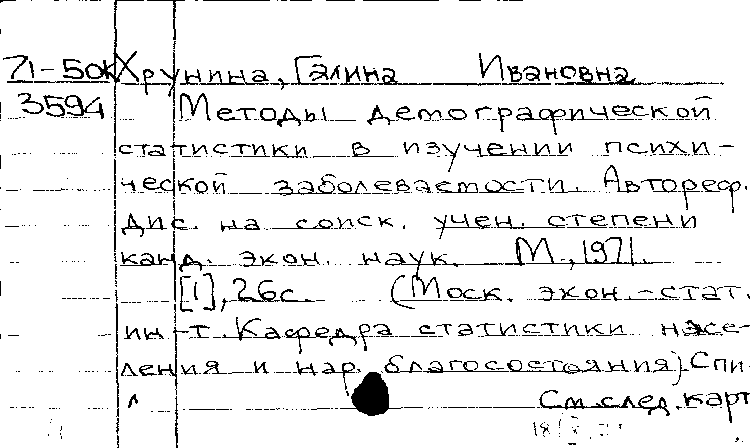 71-50к Хрунина, Галина Ивановна
3594 Методы демографической
статистики в изучении психи-
ческой заболеваемости. Автореф.
дис. на соиск. учен. степени
канд. экон. наук. М., 1971.
[1], 26с. (Моск. экон.-стат.
ин-т. Кафедра статистики насе-
ления и нар. благосостояния). Спи-
См. след. карт